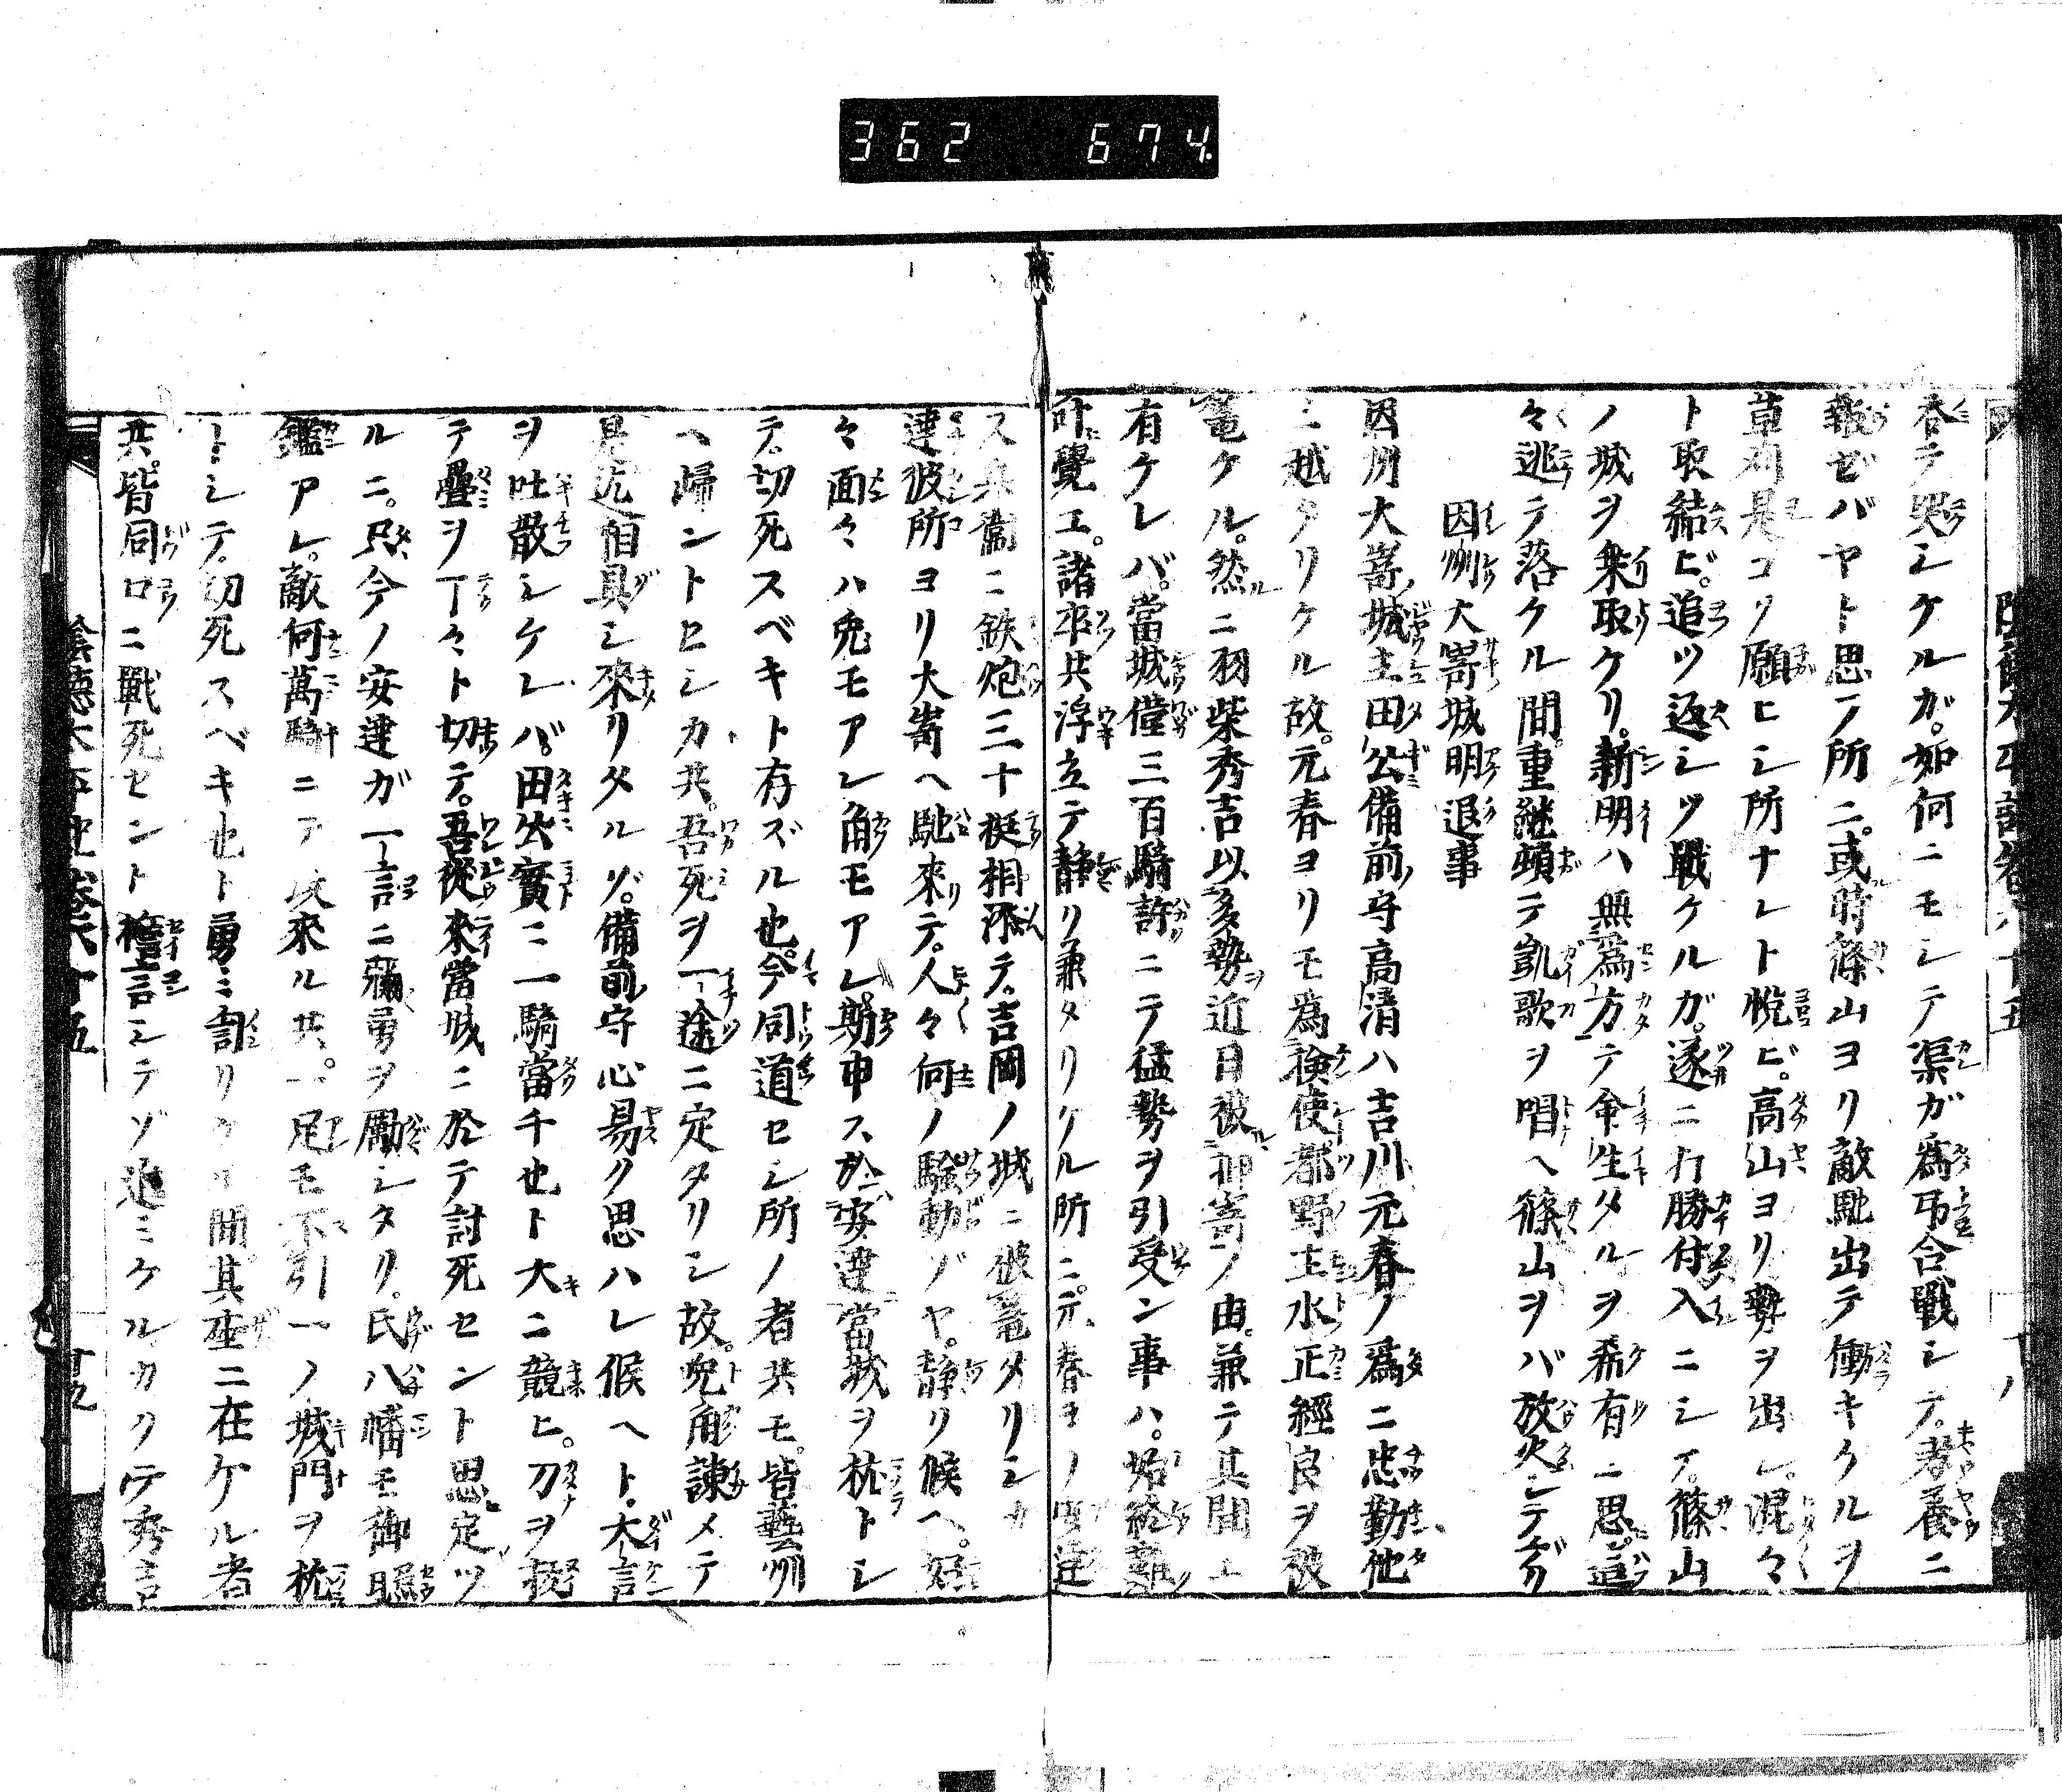 362 674.
呑テ哭シケルガ。如何ニモシテ渠ガ為弔合戰シテ。孝養ニ
報ゼバヤト思フ所ニ。或時篠山ヨリ敵馳出テ働キケルヲ
草刈是コソ願ヒシ所ナレト悦ビ。高山ヨリ勢ヲ出シ。混々
ト取結ビ。追ツ返シツ戰ケルガ。遂ニ打勝付入ニシテ。篠山
ノ城ヲ乗取ケリ。新明ハ無為方テ命生タルヲ希有ニ思
々逃テ落ケル間。重継頓テ凱歌ヲ唱ヘ篠山ヲバ放火シテ
因州大嵜城明退事
因州大嵜城主田公備前守高清ハ吉川元春ノ為ニ忠勤他
ニ越タリケル故。元春ヨリモ為検使都野主水正經良ヲ被
篭ケル。然ニ羽柴秀吉以多勢近日被押寄ノ由。兼テ其聞エ
有ケレバ。當城僅三百騎許ニテ猛勢ヲ引受ン事ハ。始終難
叶覺エ。諸卒共浮立テ静リ兼タリケル所ニ。元春ヨリ安達
ス兵衛ニ鉄炮三十挺相添テ。吉岡ノ城ニ被篭タリシカ
達彼所ヨリ大嵜ヘ馳來テ。人々何ノ騒動ゾヤ。静リ候ヘ。
々面々ハ兎モアレ角モアレ。斯申ス於安達當城ヲ枕トシ
テ。切死スベキト存ズル也。今同道セシ所ノ者共モ。皆藝州
ヘ歸ントセシカ共。吾死ヲ一途ニ定タリシ故。兎角諫メテ
是迄相具シ來リタルゾ。備前守心易ク思ハレ候ヘト。大言
ヲ吐散シケレバ。田公實ニ一騎當千也ト大ニ競ヒ。刀ヲ抜
テ疊ヲ丁々ト切テ。吾從來當城ニ於テ討死セント思定ツ
ルニ。只今ノ安達ガ一言ニ彌勇ヲ勵シタリ。氏八幡モ御照
鑑アレ。敵何萬騎ニテ攻來ル共。一足モ不引一ノ城門ヲ枕
トシテ。切死スベキ也ト勇ミ訇リケル間。其座ニ在ケル者
共。皆同口ニ戰死セント誓言シテゾ進ミケルカクテ秀吉
陰徳太平記巻六十五